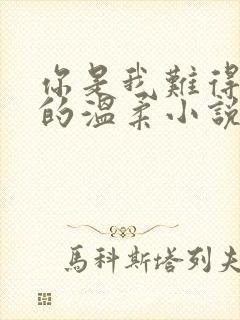 你是我難得
的溫柔小說
馬科斯塔列夫